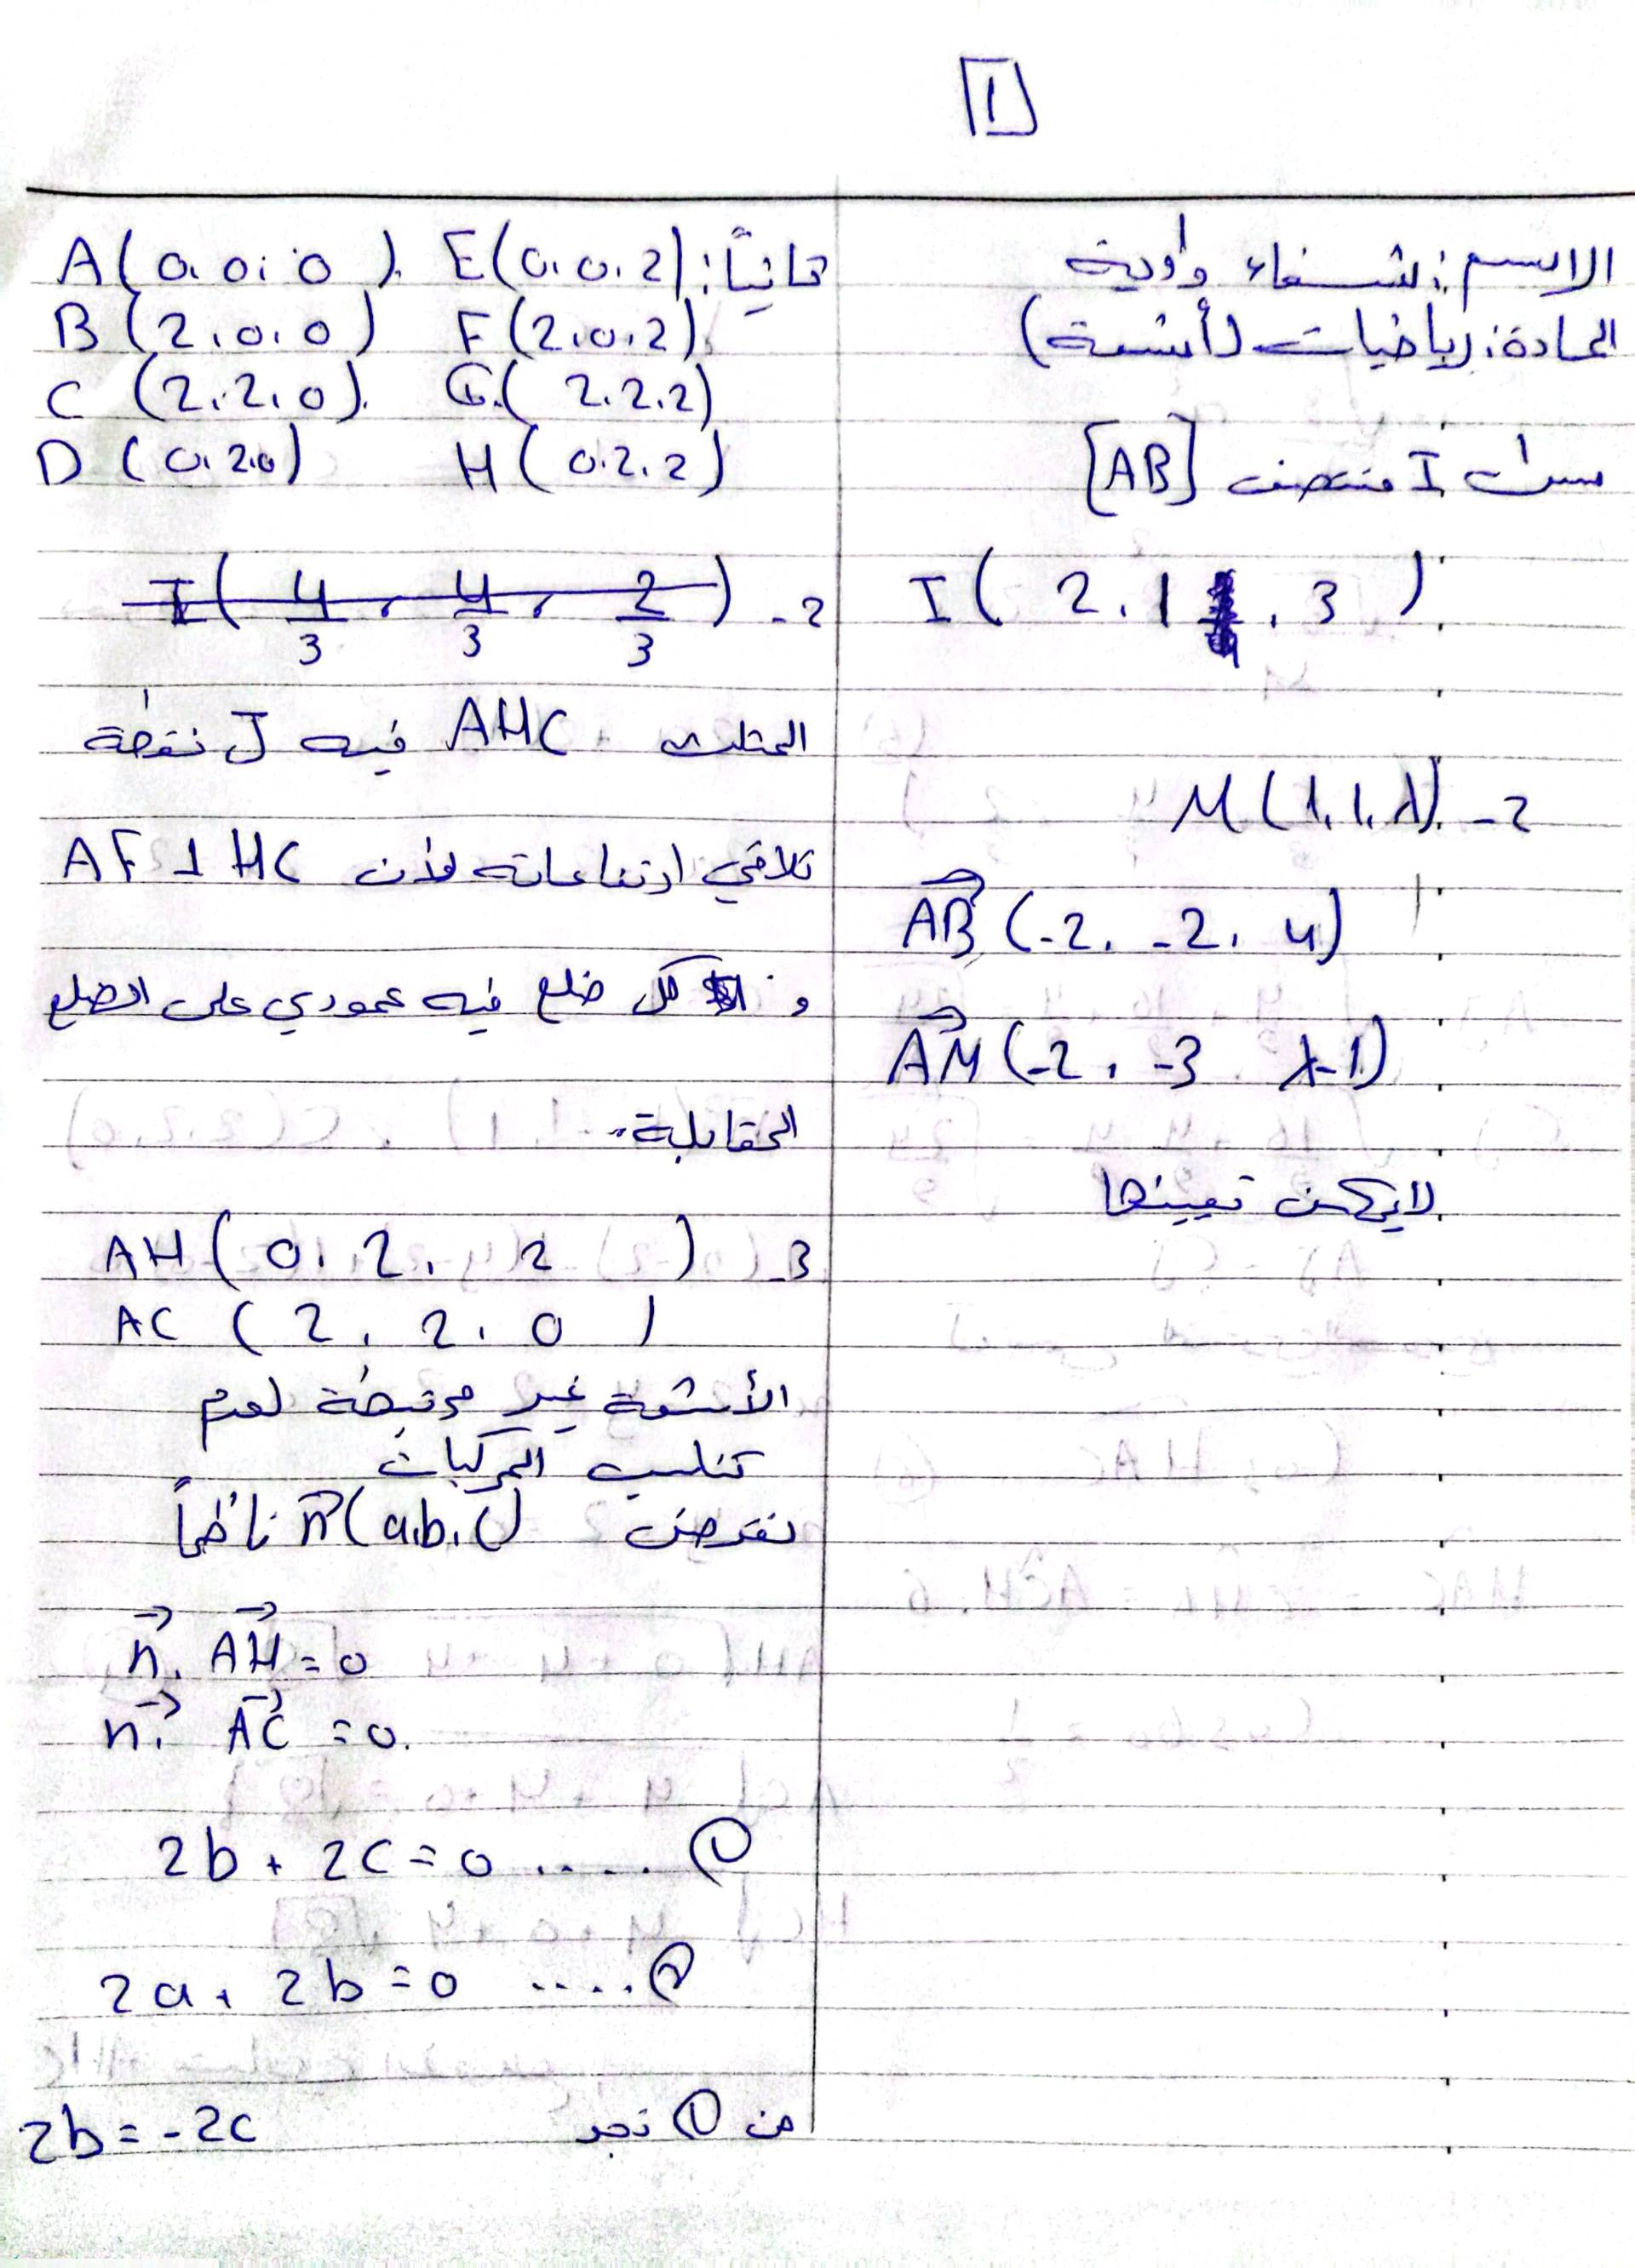 1
الاسم: شفاء واوية
المادة: رياضيات (أشعة)
س1- I منتصف [AB]
I ( 2, 1, 3 )
2- M(1, 1, λ)
AB (-2, -2, 4)
AM (-2, -3, λ-1)
لا يمكن تعيينها
ثانياً: A(0, 0, 0) E(0, 0, 2)
B (2, 0, 0) F(2, 0, 2)
C (2, 2, 0) G(2, 2, 2)
D (0, 2, 0) H(0, 2, 2)
2- I( 4/3, 4/3, 2/3 )
المثلث AHC فيه J نقطة
تلاقي ارتفاعاته لأن AF ⊥ HC
و كل ضلع فيه عمودي على الضلع
المقابلة.
3- AH ( 0, 2, 2 )
AC ( 2, 2, 0 )
الأشعة غير مرتبطة لعدم
تناسب المركبات
نفرض n(a, b, c) ناظماً
n . AH = 0
n . AC = 0
2b + 2c = 0 ..... ①
2a + 2b = 0 ..... ②
من ① نجد 2b = -2c